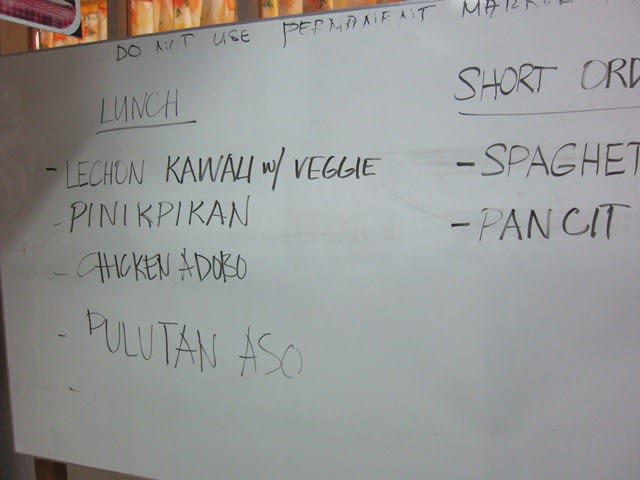 DO NOT USE PERMANENT MARKER
LUNCH
- LECHON KAWALI w/ VEGGIE
- PINIKPIKAN
- CHICKEN ADOBO
- PULUTAN ASO
-
SHORT ORD
- SPAGHET
- PANCIT